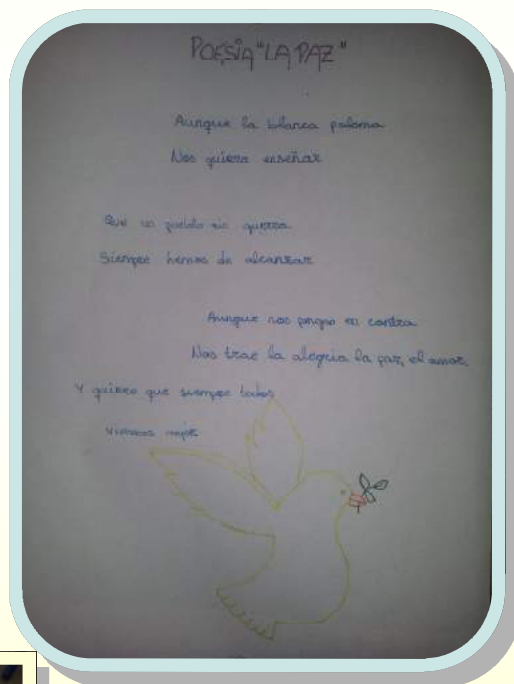 POESÍA "LA PAZ"
Aunque la blanca paloma
Nos quiera enseñar
Que un pueblo sin guerra
Siempre hemos de alcanzar
Aunque nos ponga en contra
Nos trae la alegria la paz, el amor.
Y quiero que siempre todos
vivamos mejor